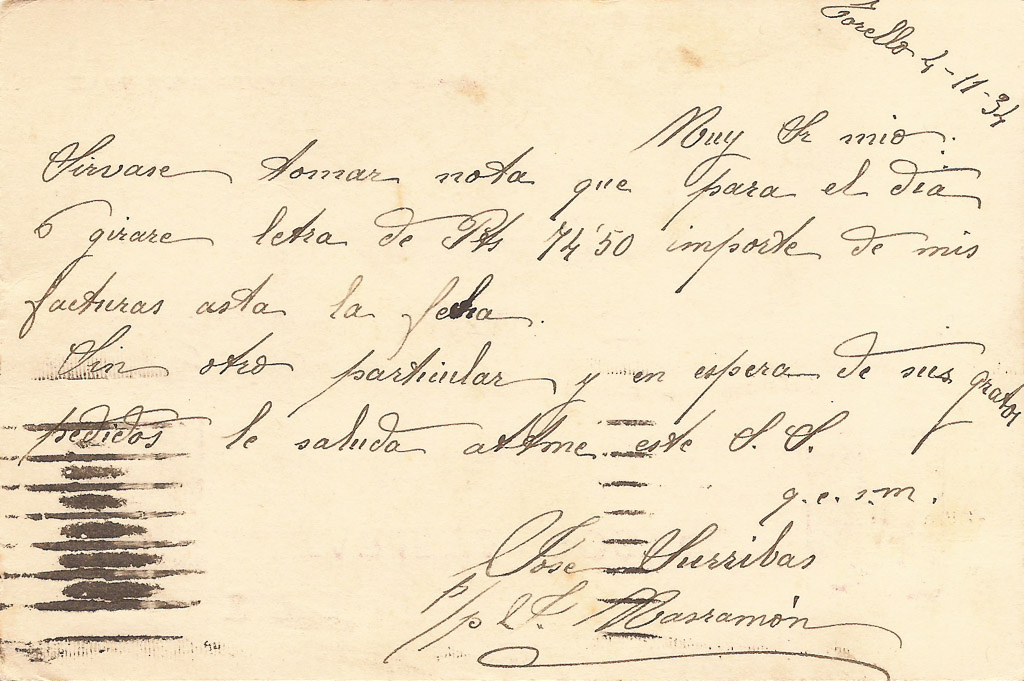 Torello 4-11-34
Muy Sr mio:
Sirvase tomar nota que para el dia
6 girare letra de Pts 74'50 importe de mis
facturas asta la fetxa.
Sin otro particular y en espera de sus gratos
pedidos le saluda attme. este S. S.
q. e. s. m.
Jose Surribas
p/p L. S. Masramón